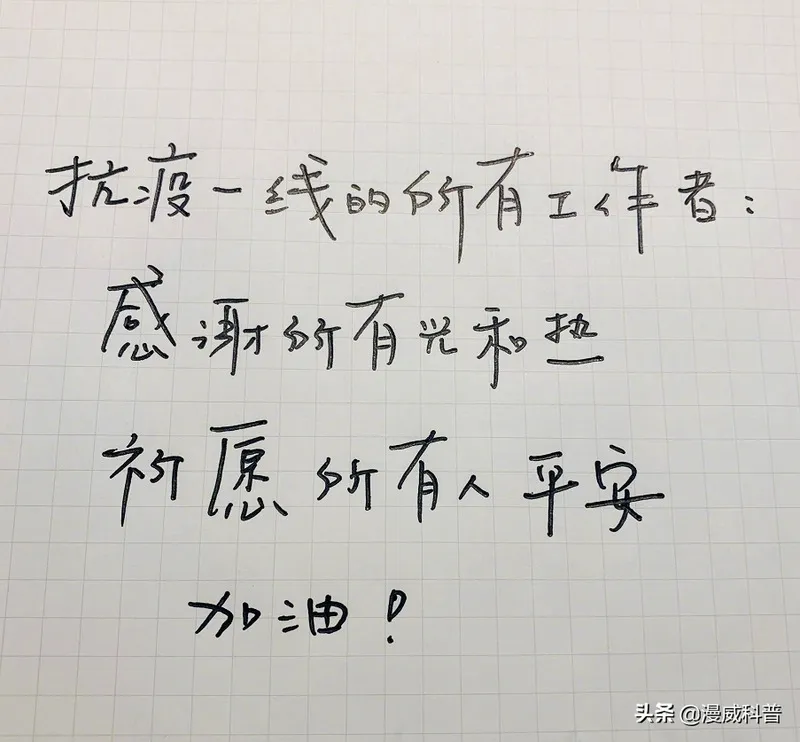 抗疫一线的所有工作者：
感谢所有光和热
祈愿所有人平安
加油！
头条 @漫威科普